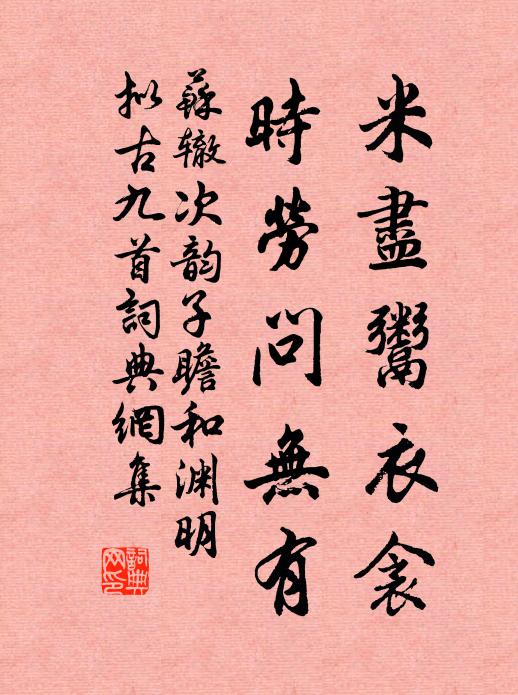 米盡鬻衣衾
時勞問無有
蘇辙次韵子瞻和渊明
拟古九首詞典網集
詞典網印